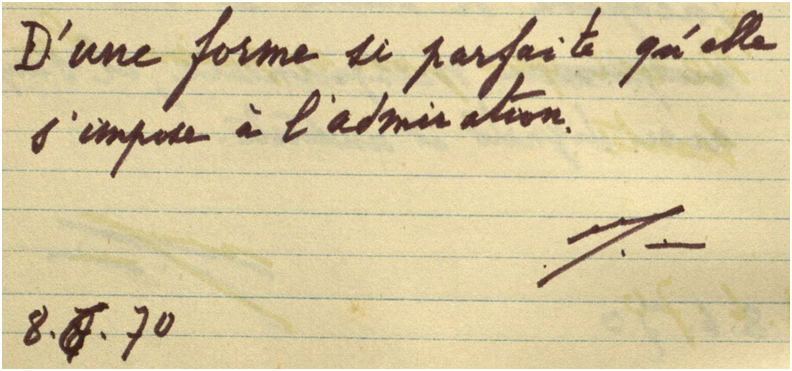 D'une forme si parfaite qu'elle
s'impose à l'admiration.
8. . 70